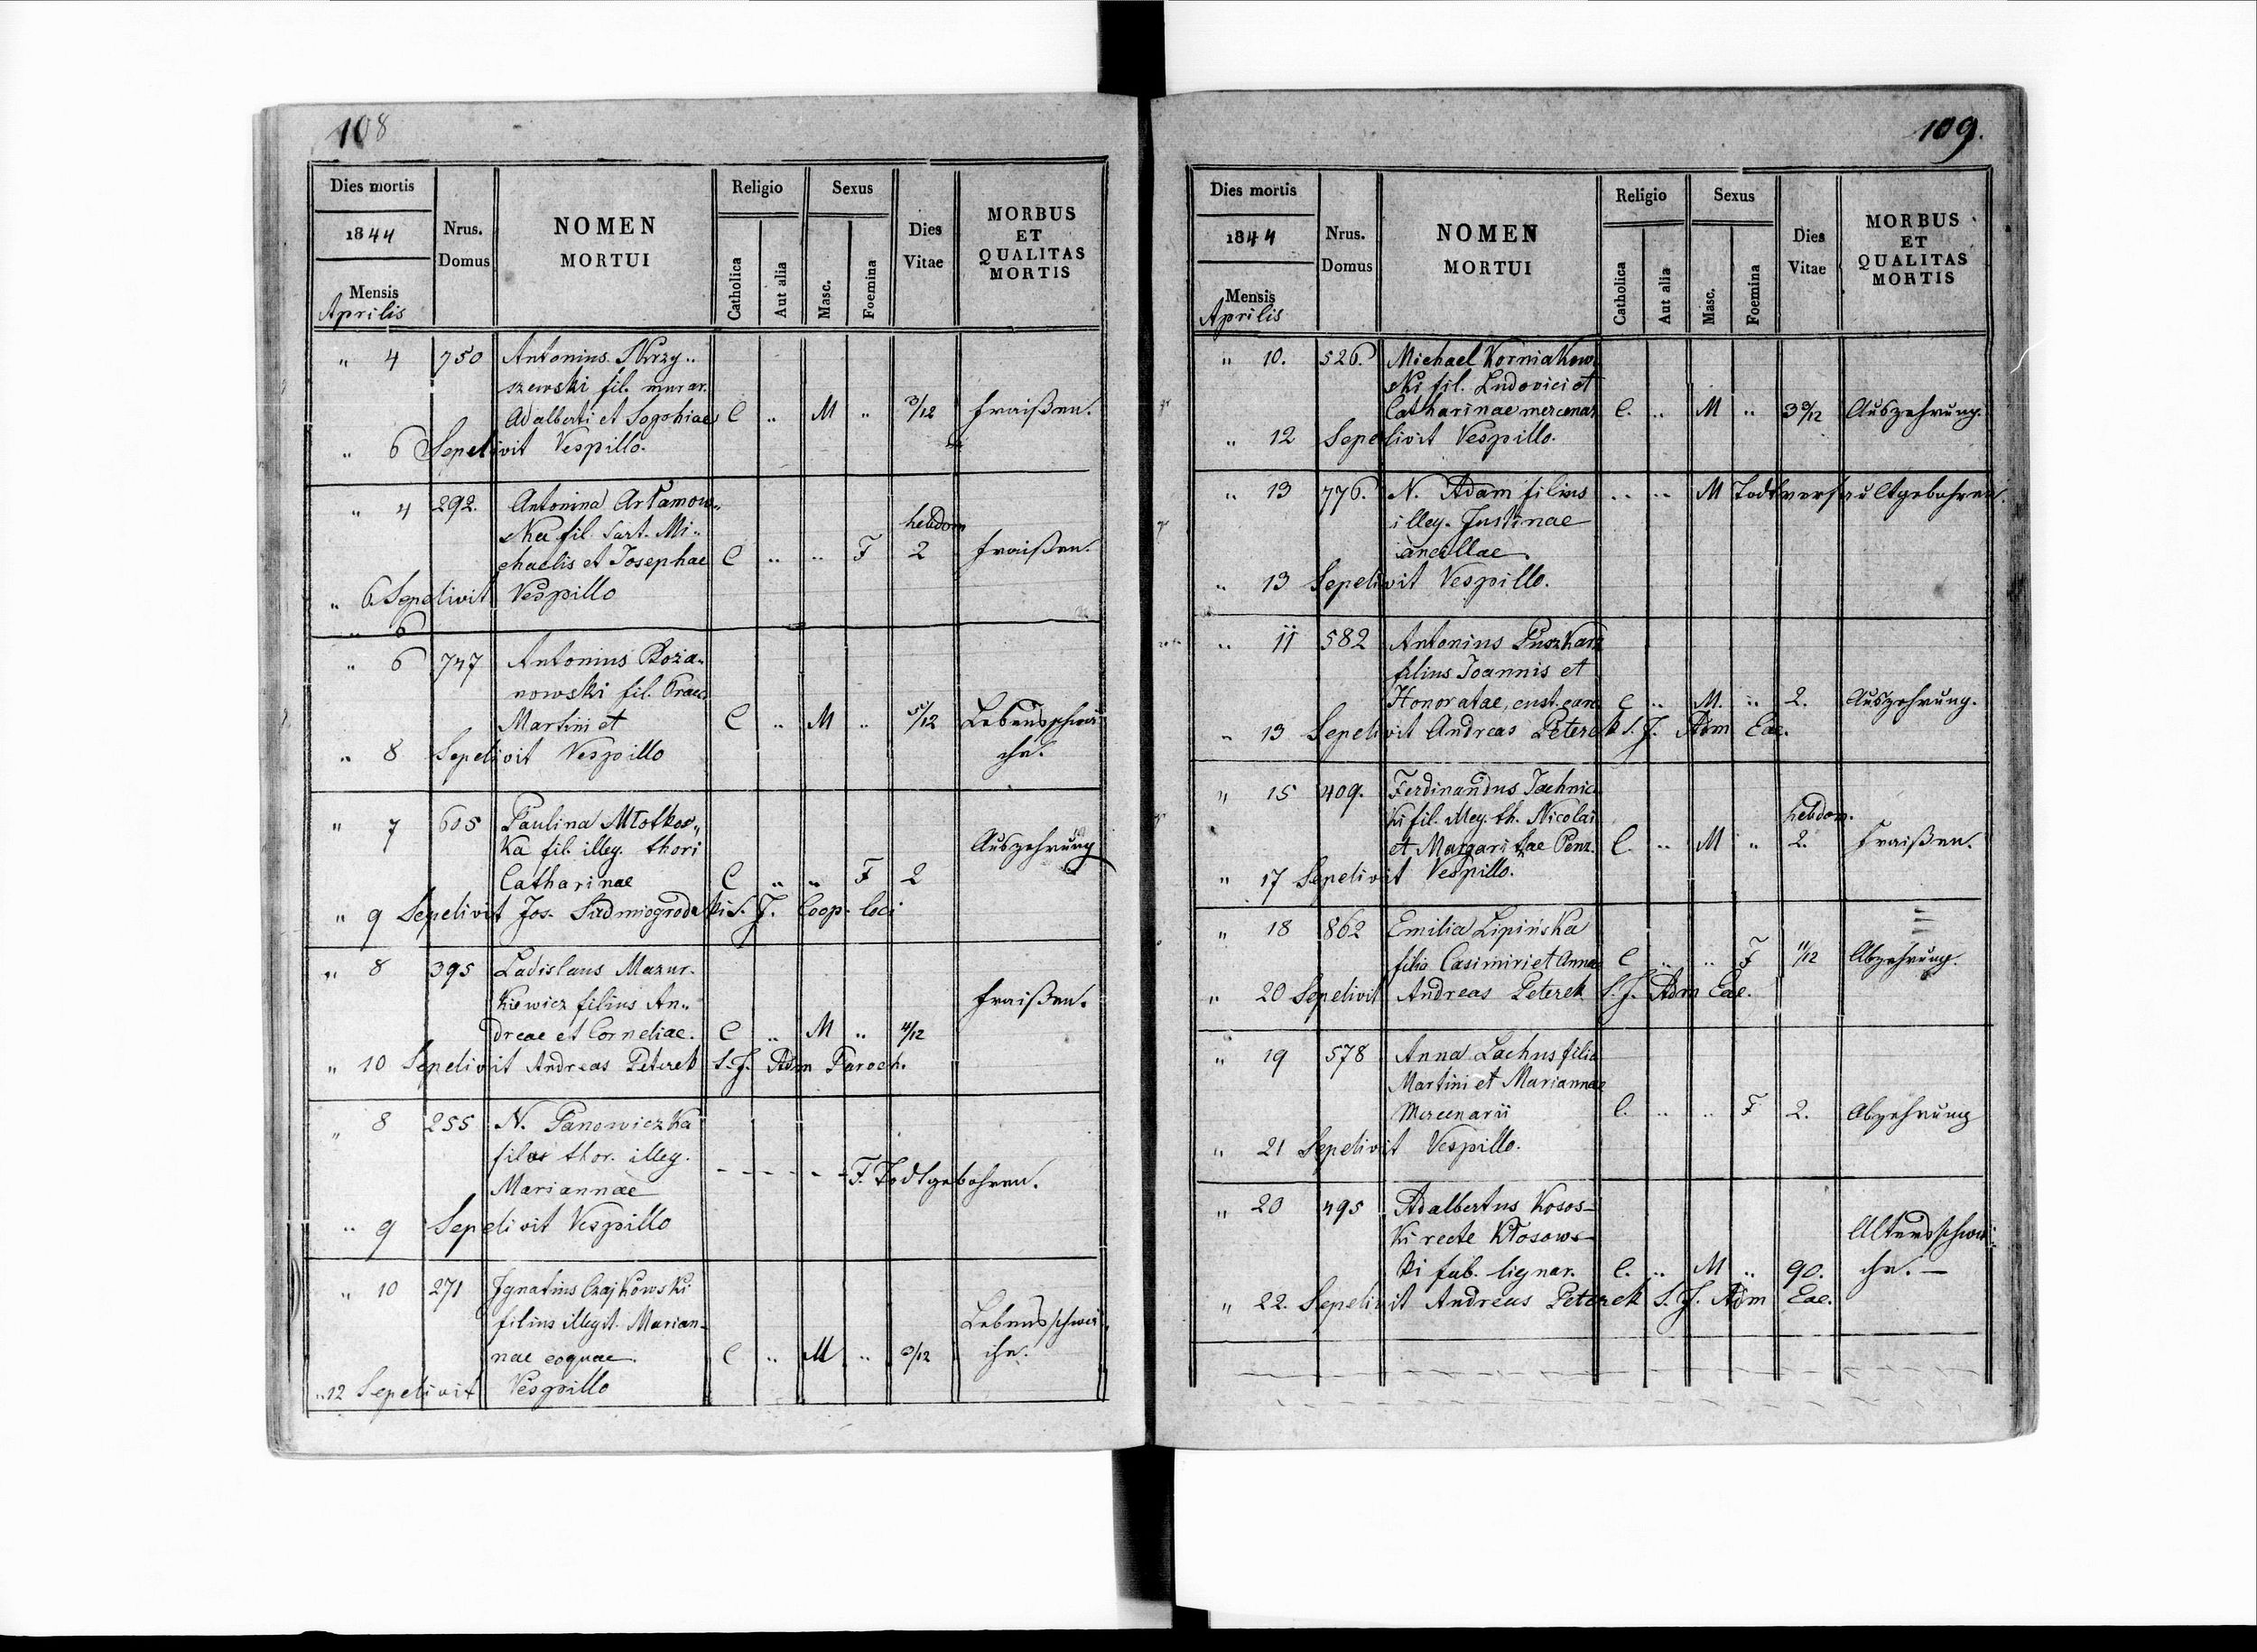 108
Dies mortis
1844
Mensis
Aprilis
Nrus.
Domus
NOMEN
MORTUI
Religio
Catholica
Aut alia
Sexus
Masc.
Foemina
Dies
Vitae
MORBUS
ET
QUALITAS
MORTIS
„ 4 750 Antonius Skrzy„
szewski fil. murar.
Adalberti et Sophiae C „ M „ 3/12 Fraißen.
„ 6 Sepelivit Vespillo.
„ 4 292. Antonina Artamow„
ska fil. sart. Mi„ hebdom
chaelis et Josephae C „ „ F 2 Fraißen.
„ 6 Sepelivit Vespillo
„ 6
„ 6 747 Antonius Boza„
nowski fil.
Martini et C „ M „ 5/12 Lebensschwä„
„ 8 Sepelivit Vespillo che.
„ 7 605 Paulina Młotkow„
ka fil. illeg. thori Auszehrung
Catharinae C „ „ F 2
„ 9 Sepelivit Jos. Siedmiogrodzki S. J. Coop. loci
„ 8 395 Ladislaus Mazur„
kiewicz filius An„ Fraißen.
dreae et Corneliae. C „ M „ 4/12
„ 10 Sepelivit Andreas Peterek S. J. Adm Paroch.
„ 8 255 N. Panowiczka
thor. illeg.
Mariannae - - - - - F. Todtgebohren.
„ 9 Sepelivit Vespillo
„ 10 271 Ignatius Czajkowski
filius illegit. Marian- Lebensschwä„
nae coquae. C „ M „ 3/12 che.
„ 12 Sepelivit Vespillo
109.
Dies mortis
1844
Mensis
Aprilis
Nrus.
Domus
NOMEN
MORTUI
Religio
Catholica
Aut alia
Sexus
Masc.
Foemina
Dies
Vitae
MORBUS
ET
QUALITAS
MORTIS
„ 10. 526. Michael Korniakow„
ski fil. Ludovici et
Catharinae mercenar. C. „ M „ 3 9/12 Auszehrung.
„ 12 Sepelivit Vespillo.
„ 13 776. N. Adam filius „ „ M Todtverfaultgebohren.
illeg. Justinae
ancillae.
„ 13 Sepelivit Vespillo.
„ 11 582 Antonius Puszkarz
filius Joannis et
Honoratae, cust. carc. C „ M. „ 2. Auszehrung.
„ 13 Sepelivit Andreas Peterek S. J. Adm Eae.
„ 15 409. Ferdinandus Jachnic„
ki fil. illeg. th. Nicolai hebdom.
et Margaritae Penz. C. „ M „ 2. Fraißen.
„ 17 Sepelivit Vespillo.
„ 18 862 Emilia Lipińska
filia Casimiri et Annae C „ „ F 11/12 Abzehrung.
„ 20 Sepelivit Andreas Peterek S. J. Adm Eae.
„ 19 578 Anna Lachus filia
Martini et Mariannae
Mercenarii C. „ „ F 2. Abzehrung
„ 21 Sepelivit Vespillo.
„ 20 495 Adalbertus Kosos-
ki recte Kłosows- Altersschwä„
ki fab. lignar. C. „ M „ 90. che. —
„ 22. Sepelivit Andreas Peterek S. J. Adm Eae.